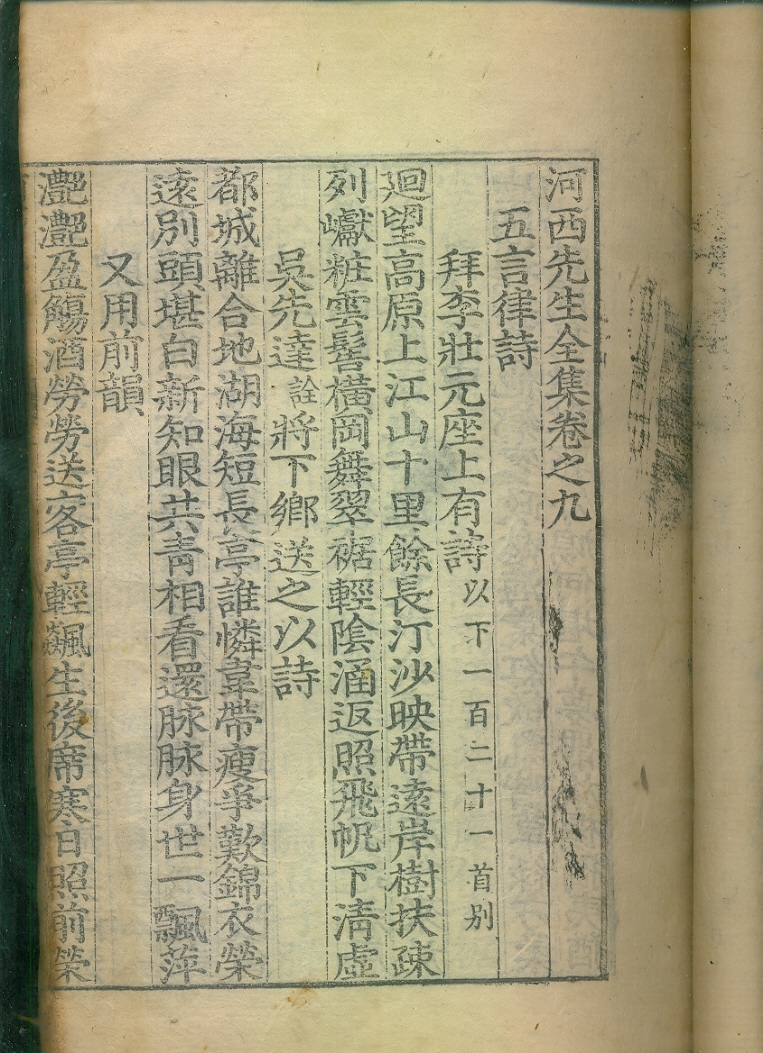 河西先生全集卷之九
五言律詩
拜李壯元座上有詩以下一百二十一首別
廻望高原上江山十里餘長汀沙映帶遠岸樹扶疎
列巘粧雲髻橫岡舞翠裾輕陰涵返照飛帆下淸虛
吳先達詮將下鄕送之以詩
都城離合地湖海短長亭誰憐韋帶瘦爭歎錦衣榮
遠別頭堪白新知眼共靑相看還脉脉身世一飄萍
又用前韻
灔灔盈觴酒勞勞送客亭輕飆生後席寒日照前榮